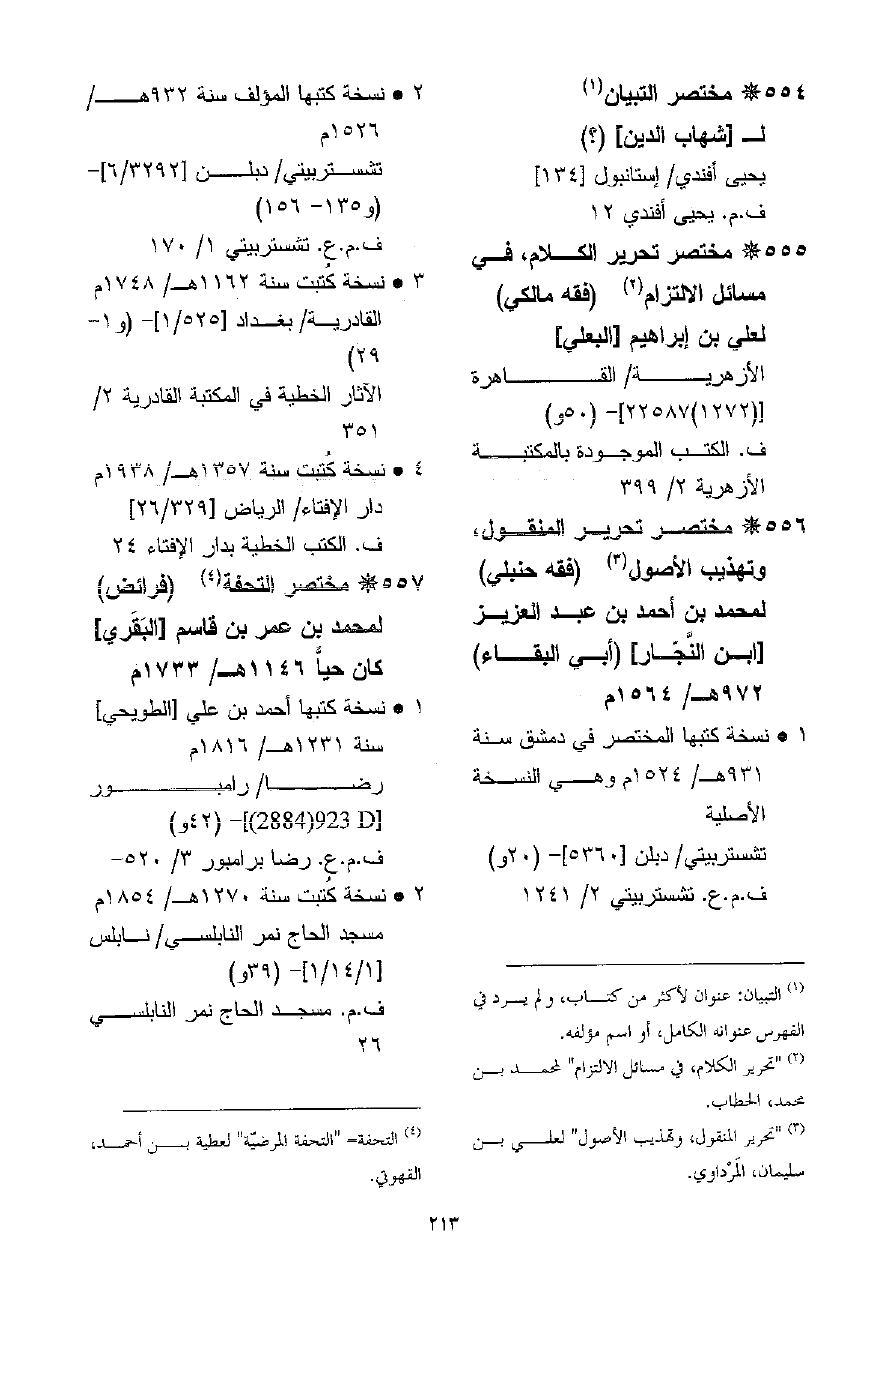 ٥٥٤ ❋ مختصر التبيان(١)
لـ [شهاب الدين] (؟)
يحيى أفندي/ إستانبول [١٣٤]
ف.م. يحيى أفندي ١٢
٥٥٥ ❋ مختصر تحرير الكلام، في
مسائل الالتزام(٢) (فقه مالكي)
لعلي بن إبراهيم [البعلي]
الأزهرية/ القاهرة
[(١٢٧٢)٢٢٥٨٧]- (٥٠و)
ف. الكتب الموجودة بالمكتبة
الأزهرية ٢/ ٣٩٩
٥٥٦ ❋ مختصر تحرير المنقول،
وتهذيب الأصول(٣) (فقه حنبلي)
لمحمد بن أحمد بن عبد العزيز
[ابن النَّجّار] (أبي البقاء)
٩٧٢هـ/ ١٥٦٤م
١ • نسخة كتبها المختصر في دمشق سنة
٩٣١هـ/ ١٥٢٤م وهي النسخة
الأصلية
تشستربيتي/ دبلن [٥٣٦٠]- (٢٠و)
ف.م.ع. تشستربيتي ٢/ ١٢٤١
(١) التبيان: عنوان لأكثر من كتاب، ولم يرد في
الفهرس عنوانه الكامل، أو اسم مؤلفه.
(٢) "تحرير الكلام، في مسائل الالتزام" لمحمد بن
محمد، الحطاب.
(٣) "تحرير المنقول، وتهذيب الأصول" لعلي بن
سليمان، المَرْداوي.
٢ • نسخة كتبها المؤلف سنة ٩٣٢هـ/
١٥٢٦م
تشستربيتي/ دبلن [٦/٣٢٩٢]-
(و١٣٥- ١٥٦)
ف.م.ع. تشستربيتي ١/ ١٧٠
٣ • نسخة كُتبت سنة ١١٦٢هـ/ ١٧٤٨م
القادرية/ بغداد [١/٥٢٥]- (و١-
٢٩)
الآثار الخطية في المكتبة القادرية ٢/
٣٥١
٤ • نسخة كُتبت سنة ١٣٥٧هـ/ ١٩٣٨م
دار الإفتاء/ الرياض [٢٦/٣٢٩]
ف. الكتب الخطية بدار الإفتاء ٢٤
٥٥٧ ❋ مختصر التحفة(٤) (فرائض)
لمحمد بن عمر بن قاسم [البَقَري]
كان حياً ١١٤٦هـ/ ١٧٣٣م
١ • نسخة كتبها أحمد بن علي [الطويحي]
سنة ١٢٣١هـ/ ١٨١٦م
رضا/ رامبور
[(2884)923 D]- (٤٢و)
ف.م.ع. رضا برامبور ٣/ ٥٢٠-
٢ • نسخة كُتبت سنة ١٢٧٠هـ/ ١٨٥٤م
مسجد الحاج نمر النابلسي/ نابلس
[١/١٤/١]- (٣٩و)
ف.م. مسجد الحاج نمر النابلسي
٢٦
(٤) التحفة= "التحفة المرضيّة" لعطية بن أحمد،
القهوتي.
٢١٣